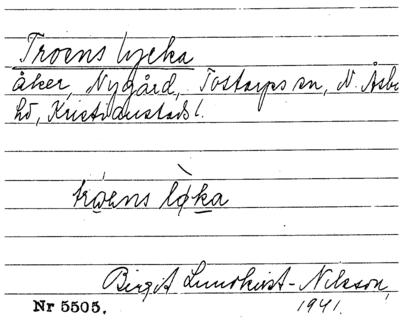 Troens lycka
åker, Nygård, Tostarps sn, N. Åsbo
hd, Kristianstads l.
tróens lỳ̀ka
Birgit Lundkvist-Nilsson,
Nr 5505. 1941.